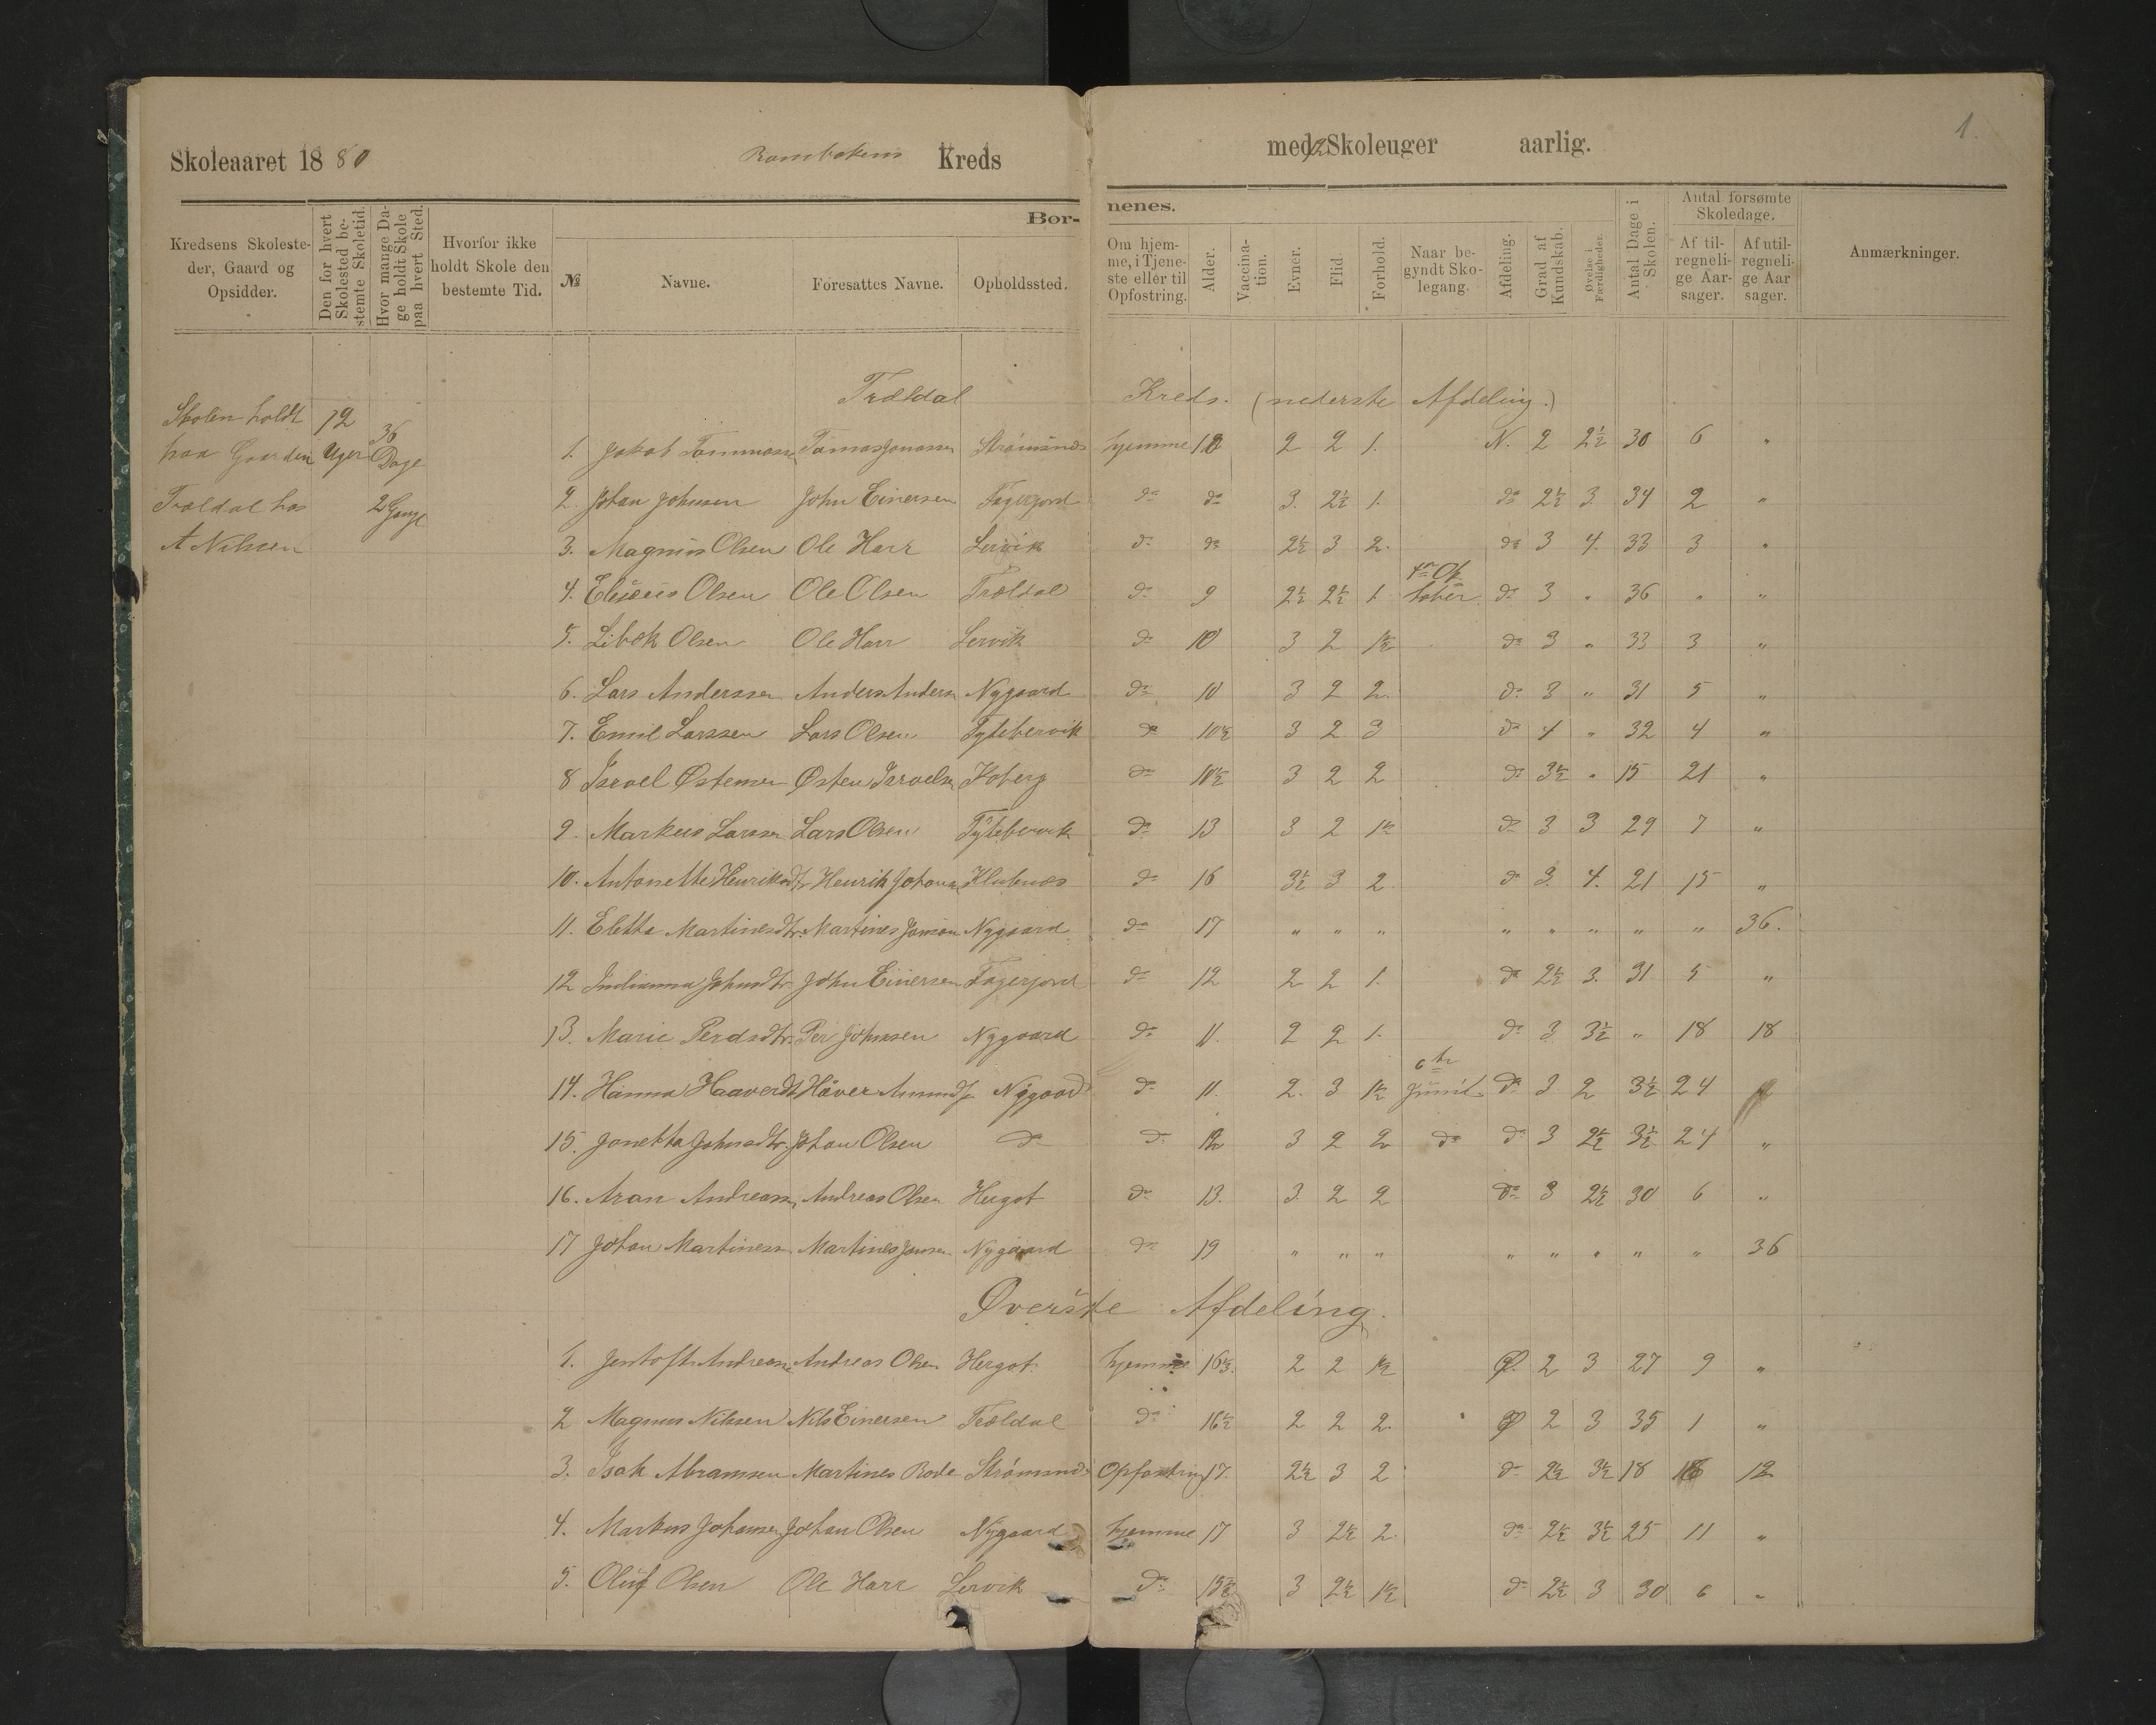 1.
Skoleaaret 1880 Rombakens Kreds med 12 Skoleuger aarlig.
Kredsens Skolesteder, Gaard og Opsidder.
Den for hvert Skolested bestemte Skoletid.
Hvor mange Dage holdt Skole paa hvert Sted.
Hvorfor ikke holdt Skole den bestemte Tid.
Børnenes.
№
Navne.
Foresattes Navne.
Opholdssted.
Om hjemme, i Tjeneste eller til Opfostring.
Alder.
Vaccination.
Evner.
Flid.
Forhold.
Naar begyndt Skolegang.
Afdeling.
Grad af Kundskab.
Øvelse i Færdigheder.
Antal Dage i Skolen.
Antal forsømte Skoledage.
Af tilregnelige Aarsager.
Af utilregnelige Aarsager.
Anmærkninger.
Skolen holdt
paa Gaarden
Trældal hos
A Nilssen
12 Uger
36 Dage
2 Gange
Trældal Kreds. (nederste Afdeling.)
1. Jakob Tommassen Tomas Jonassen Strømsnes hjemme 12 2 2 1. N. 2 2½ 30 6 "
2. Johan Johnsen John Einersen Fagerjord do do 3. 2½ 1. do 2½ 3. 34 2 "
3. Magnus Olsen Ole Harr Lervik do do 2½ 3 2. do 3 4. 33 3 "
4. Elisæus Olsen Ole Olsen Trældal do 9 2½ 2½ 1 4de Oktober do 3 " 36 " "
5. Libek Olsen Ole Harr Lervik do 10 3 2 1½ do 3 " 33 3 "
6. Lars Anderssen Anders Anders. Nygaard do 10 3 2 2. do 3 " 31 5 "
7. Emil Larssen Lars Olsen Tytebervik do 10½ 3 2 3 do 4 " 32 4 "
8 Israel Østensen Østen Israelsen Koberg do 10½ 3 2 2 do 3½ " 15 21 "
9. Markus Larssen Lars Olsen Tytebervik do 13 3 2 1½ do 3 3 29 7 "
10. Antonette Henriksdtr Henrik Johans. Klubnæs do 16 3½ 3 2. do 3. 4. 21 15 "
11. Eletta Martinesdtr. Martines Jonsen Nygaard do 17 " " " " " " " " 36.
12 Indianna Johnsdtr. John Einersen Fagerjord do 12 2 2 1. do 2½ 3. 31 5 "
13. Marie Persdtr. Per Johnsen Nygaard do 11. 2 2 1. do 3 3½ " 18 18
14. Hanna Haaverdtr Håver Amunds. Nygaard do 11. 2. 3 1½ 6te Juni do 3 2 3½ 24
15. Jonetta Johnsdtr. Johan Olsen do do 12 3 2 2 do do 3 2½ 3½ 24 "
16. Aran Andreassen Andreas Olsen Hergot do 13. 3. 2 2 do 3 2½ 30 6 "
17 Johan Martinessn. Martines Jonsen Nygaard do 19 " " " " " " " " 36
Øverste Afdeling.
1. Jentoft Andreassen Andreas Olsen Hergot. hjemme 16½. 2 2 1½ Ø. 2 3 27 9 "
2 Magnus Nilssen Nils Einersen Trældal do 16½ 2 2 2. Ø 2 3 35 1 "
3. Isak Abramsen Martines Rode Strømsnes Opfostring 17. 2½ 3 2 do 2½ 3½ 18 16 12
4. Markus Johansen Johan Olsen Nygaard hjemme 17 3 2½ 2. do 2½ 3½ 25 11 "
5. Oluf Olsen Ole Harr Lervik do 15½ 3 2½ 1½ do 2½ 3 30 6 "